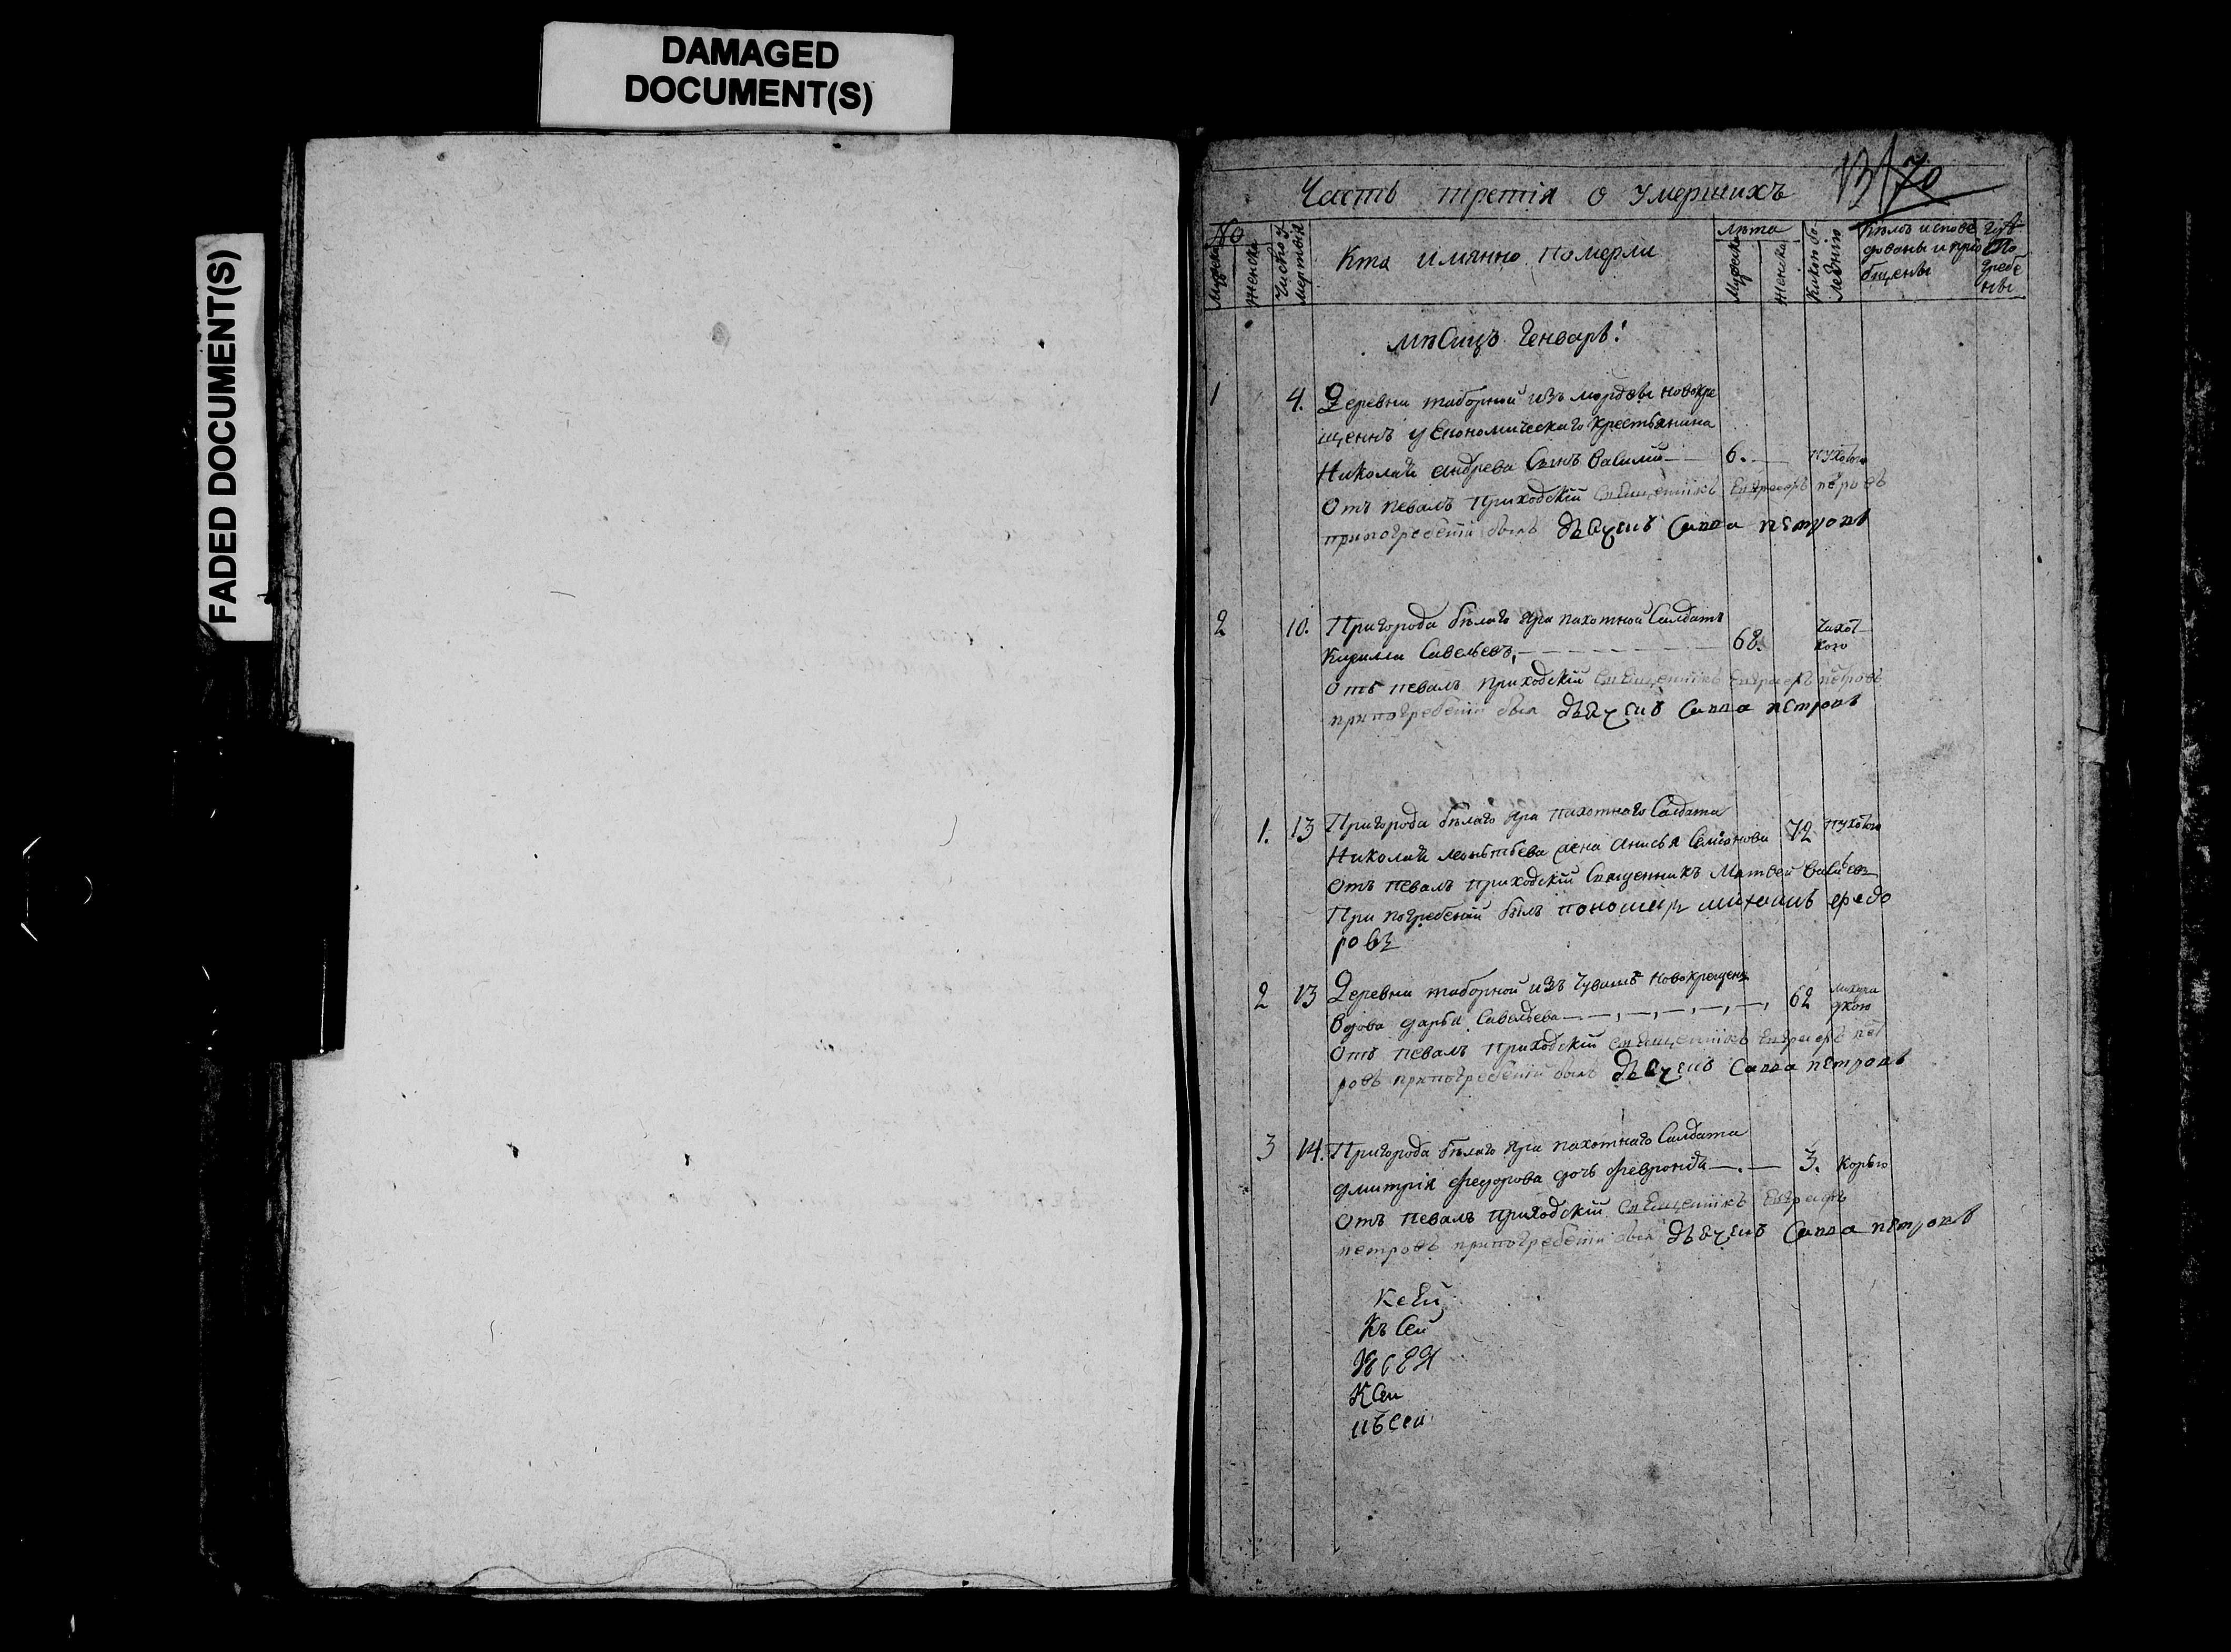 DAMAGED
DOCUMENT(S)
FADED DOCUMENT(S)
Часть третія о умершихъ
13 70
№
Мужска
Женска
Число у
мертвія
Кто имянно померли
Лѣта
Мужска
Женска
Какою бо
лезнію
Кѣмъ испове
дованы и прио
бщены
Гдѣ
по
гребе
ны
мѣсицъ Генварь!
1 4. Деревни таборной изъ мордвы новокре
щеннъ у Економическаго крестьянина
Николай андрева сынъ Василий 6.
отъ певалъ приходскій священникъ Евграфъ петровъ
припогребеніи былъ дьячекъ Савва петровъ
2 10. Пригорода бѣлаго Яра пахотной Салдатъ
Кирилла Савельевъ, 68. Чахот
кою
отъ певалъ приходскій священникъ Евграфъ петровъ
припогребеніи был дьячекъ Савва петровъ
1. 13 Пригорода бѣлаго Яра пахотнаго Салдата
Николай леонътьева жена Анисья Семіонова 72
отъ певалъ приходскій Священникъ Матвей Васильевъ
При погребеніи былъ пономарь михаилъ федо
ровъ
2 13 Деревни таборной изъ Чувашъ новокрещенъ
Вдова дарья Савельева 62 лихора
дкою
отъ певалъ приходскій священникъ Евграфъ пет
ровъ припогребеніи былъ дьячекъ Савва петровъ
3 14. Пригорода бѣлаго Яра пахотнаго Салдата
дмитрія федорова дочь февронья 3. корью
отъ певалъ приходскій священникъ Евграфъ
петровъ припогребеніи был дьячекъ Савва петровъ
Къ Сей
К Сеи